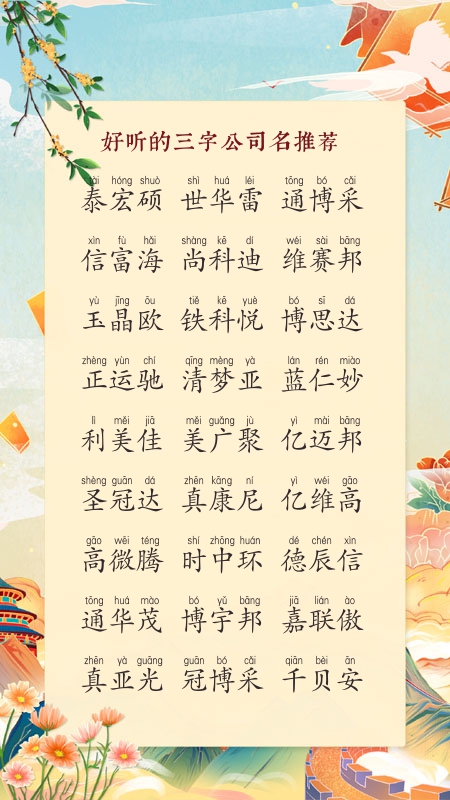 好听的三字公司名推荐
tài hóng shuò shì huá léi tōng bó cǎi
泰宏硕 世华雷 通博采
xìn fù hǎi shàng kē dí wéi sài bāng
信富海 尚科迪 维赛邦
yù jīng ōu tiě kē yuè bó sī dá
玉晶欧 铁科悦 博思达
zhèng yùn chí qīng mèng yà lán rén miào
正运驰 清梦亚 蓝仁妙
lì měi jiā měi guǎng jù yì mài bāng
利美佳 美广聚 亿迈邦
shèng guān dá zhēn kāng ní yì wéi gāo
圣冠达 真康尼 亿维高
gāo wēi téng shí zhōng huán dé chén xìn
高微腾 时中环 德辰信
tōng huá mào bó yǔ bāng jiā lián ào
通华茂 博宇邦 嘉联傲
zhēn yà guāng guān bó cǎi qiān bèi ān
真亚光 冠博采 千贝安